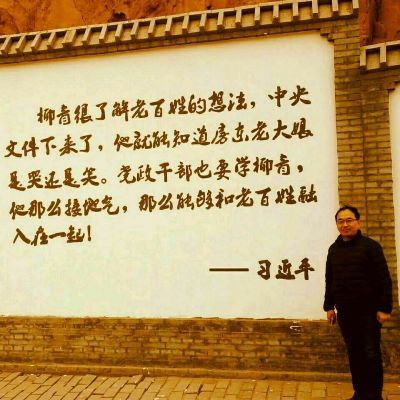 柳青很了解老百姓的想法，中央
文件下来了，他就能知道房东老大娘
是哭还是笑。党政干部也要学柳青，
他那么接地气，那么能够和老百姓融
入在一起！
——习近平